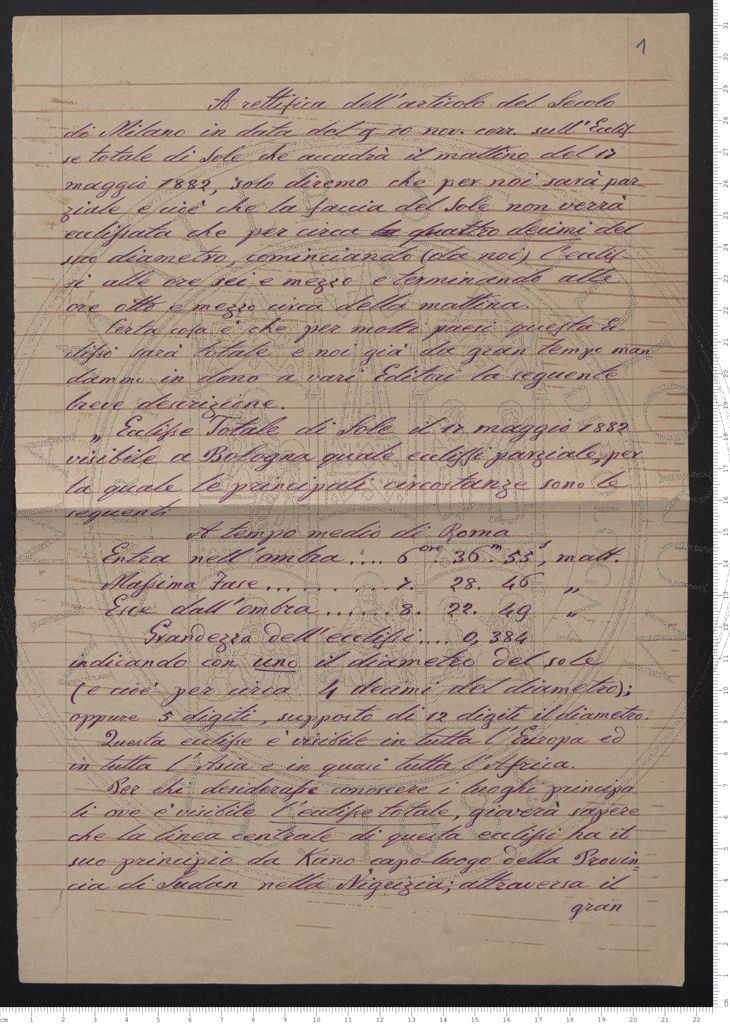 1
A rettifica dell'articolo del Secolo
di Milano in data del 9 10 nov. corr. sull'Eclis-
se totale di Sole che accadrà il mattino del 17
maggio 1882, solo diremo che per noi sarà par
ziale e cioè che la faccia del Sole non verrà
eclissata che per circa quattro decimi del
suo diametro, cominciando (da noi) l'eclis-
si alle ore sei e mezzo e terminando alle
ore otto e mezzo circa della mattina.
Certa cosa è che per molti paesi questa E-
clissi sarà totale e noi già da gran tempo man
dammo in dono a vari Editori la seguente
breve descrizione.
„ Eclisse Totale di Sole il 17 maggio 1882
visibile a Bologna quale eclissi parziale, per
la quale le principali circostanze sono le
seguenti
A tempo medio di Roma
Entra nell'ombra .... 6 ore 36 m 55 s, matt.
Massima Fase .......... 7. 28. 46 „
Esce dall'ombra ...... 8. 22. 49 „
Grandezza dell'eclissi .... 0,384
indicando con uno il diametro del sole
(e cioè per circa 4 decimi del diametro);
oppure 5 digiti, supposto di 12 digiti il diametro.
Questa eclisse è visibile in tutta l'Europa ed
in tutta l'Asia e in quasi tutta l'Africa.
Per chi desiderasse conoscere i luoghi principa
li ove è visibile l'eclisse totale, gioverà sapere
che la linea centrale di questa eclissi ha il
suo principio da Kano capo-luogo della Provin=
cia di Sudan nella Nigrizia; attraversa il
gran